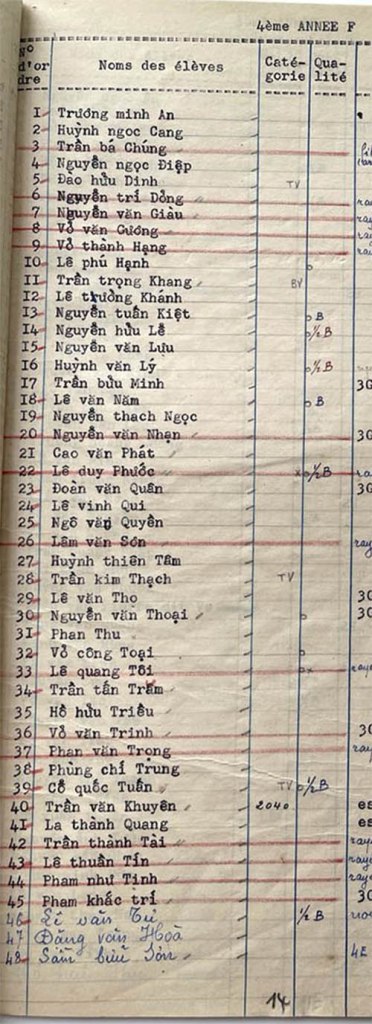 4ème ANNEE F
N° d'or dre Noms des élèves Caté- gorie Qua- lité
1 Trương minh An
2 Huỳnh ngoc Cang
3 Trần bá Chúng
4 Nguyễn ngọc Điệp
5 Đào hữu Dinh TV
6 Nguyễn trí Dõng
7 Nguyễn văn Giàu
8 Võ văn Gương
9 Võ thành Hạng
10 Lê phú Hạnh
11 Trần trọng Khang BV
12 Lê trường Khánh
13 Nguyễn tuấn Kiệt B
14 Nguyễn hữu Lễ ½ B
15 Nguyễn văn Lưu
16 Huỳnh văn Lý ½ B
17 Trần bửu Minh 30
18 Lê văn Năm B
19 Nguyễn thach Ngọc
20 Nguyễn văn Nhạn 30
21 Cao văn Phát
22 Lê duy Phước x ½ B
23 Đoàn văn Quân 30
24 Lê vinh Qui
25 Ngô văn Quyền
26 Lâm văn Sơn
27 Huỳnh thiên Tâm
28 Trần kim Thạch TV
29 Lê văn Tho 30
30 Nguyễn văn Thoại 30
31 Phan Thu
32 Võ công Toại
33 Lê quang Tôi x
34 Trần tấn Trăm
35 Hồ hữu Triều
36 Võ văn Trinh 30
37 Phan văn Trọng
38 Phùng chí Trung
39 Cổ quốc Tuấn TV ½ B
40 Trần văn Khuyên 2040 es
41 La thành Quang es
42 Trần thành Tài
43 Lê thuần Tín
44 Pham như Tịnh
45 Pham khắc trí 30
46 Lê văn Tư ½ B
47 Đặng văn Hoà
48 Sầm bửu Sơn 4E
14